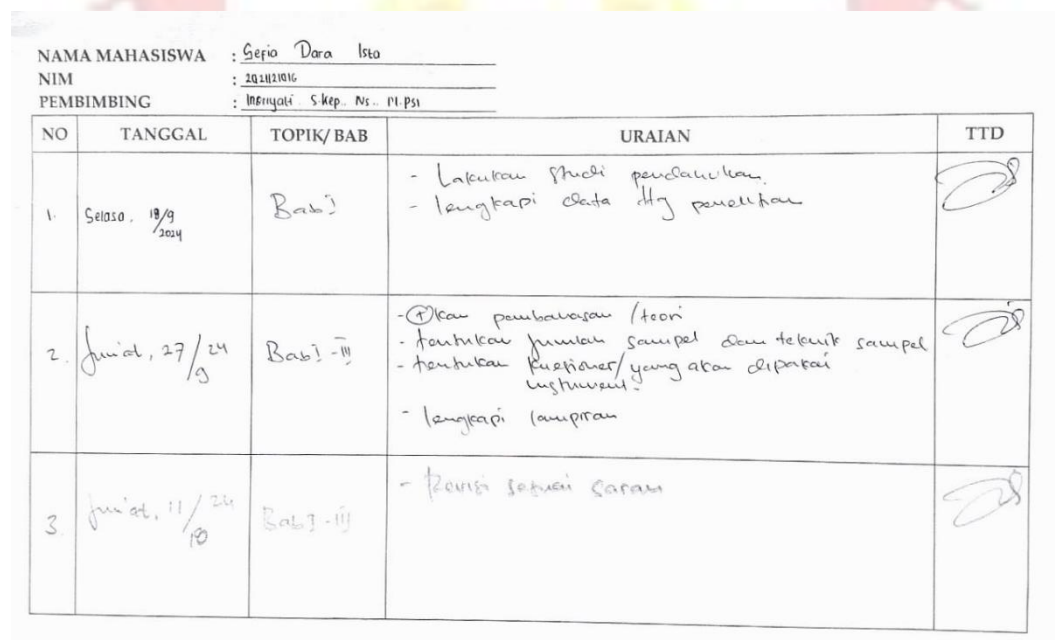 NAMA MAHASISWA : Sefia Dara Ista
NIM : 2021121016
PEMBIMBING : Insriyati S.Kep., Ns., M.Psi
NO TANGGAL TOPIK/BAB URAIAN TTD
1. Selasa, 18/9 2024 Bab I
- Lakukan studi pendahuluan
- lengkapi data ttg penelitian
2. Jum'at, 27/9 24 Bab I - III
- (+) kan pembahasan / teori
- tentukan jumlah sampel dan teknik sampel
- tentukan kuesioner/ yang akan dipakai
instrument.
- lengkapi lampiran
3. Jum'at, 11/10 24 Bab I - III
- Revisi sesuai saran